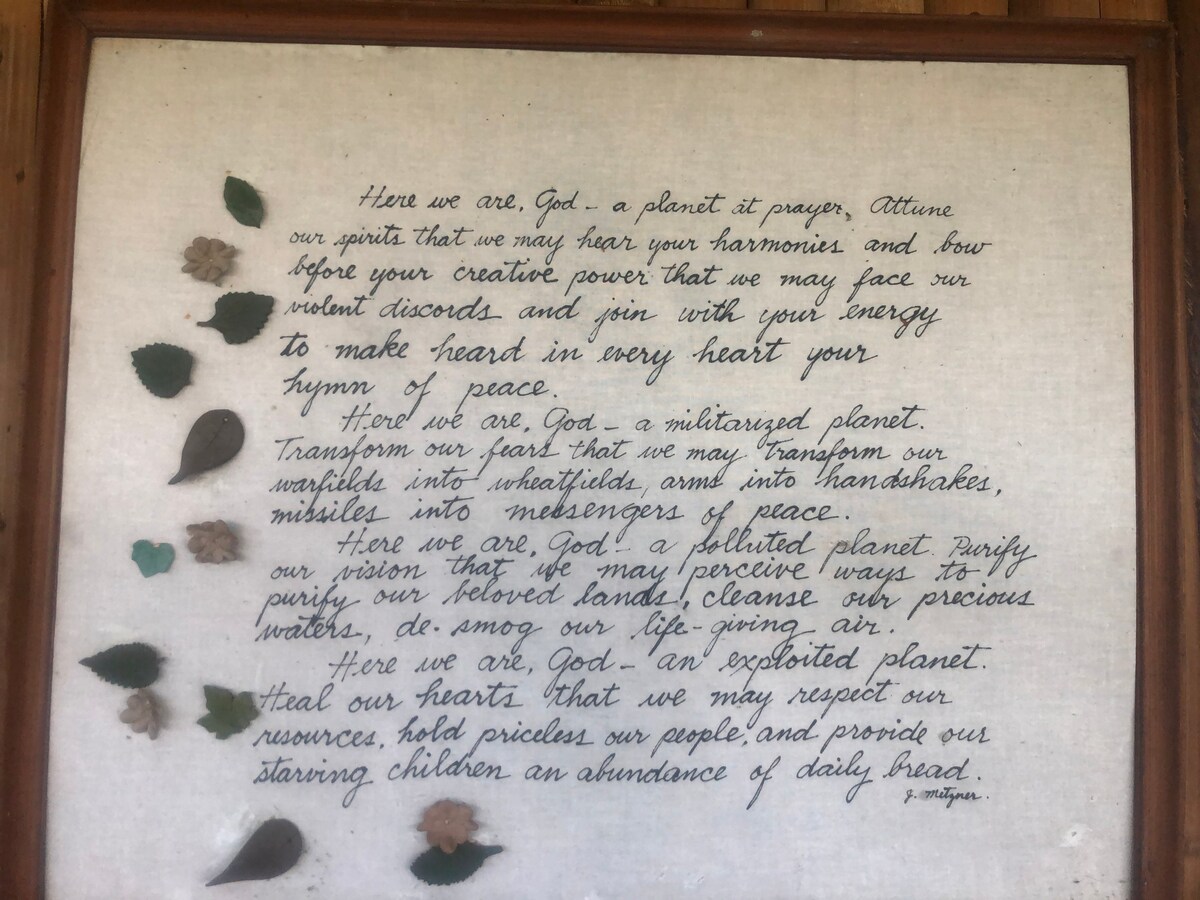 Here we are, God - a planet at prayer. Attune
our spirits that we may hear your harmonies and bow
before your creative power that we may face our
violent discords and join with your energy
to make heard in every heart your
hymn of peace.
Here we are, God - a militarized planet.
Transform our fears that we may transform our
warfields into wheatfields, arms into handshakes,
missiles into messengers of peace.
Here we are, God - a polluted planet. Purify
our vision that we may perceive ways to
purify our beloved lands, cleanse our precious
waters, de-smog our life-giving air.
Here we are, God - an exploited planet.
Heal our hearts that we may respect our
resources, hold priceless our people, and provide our
starving children an abundance of daily bread.
J. Metzner.